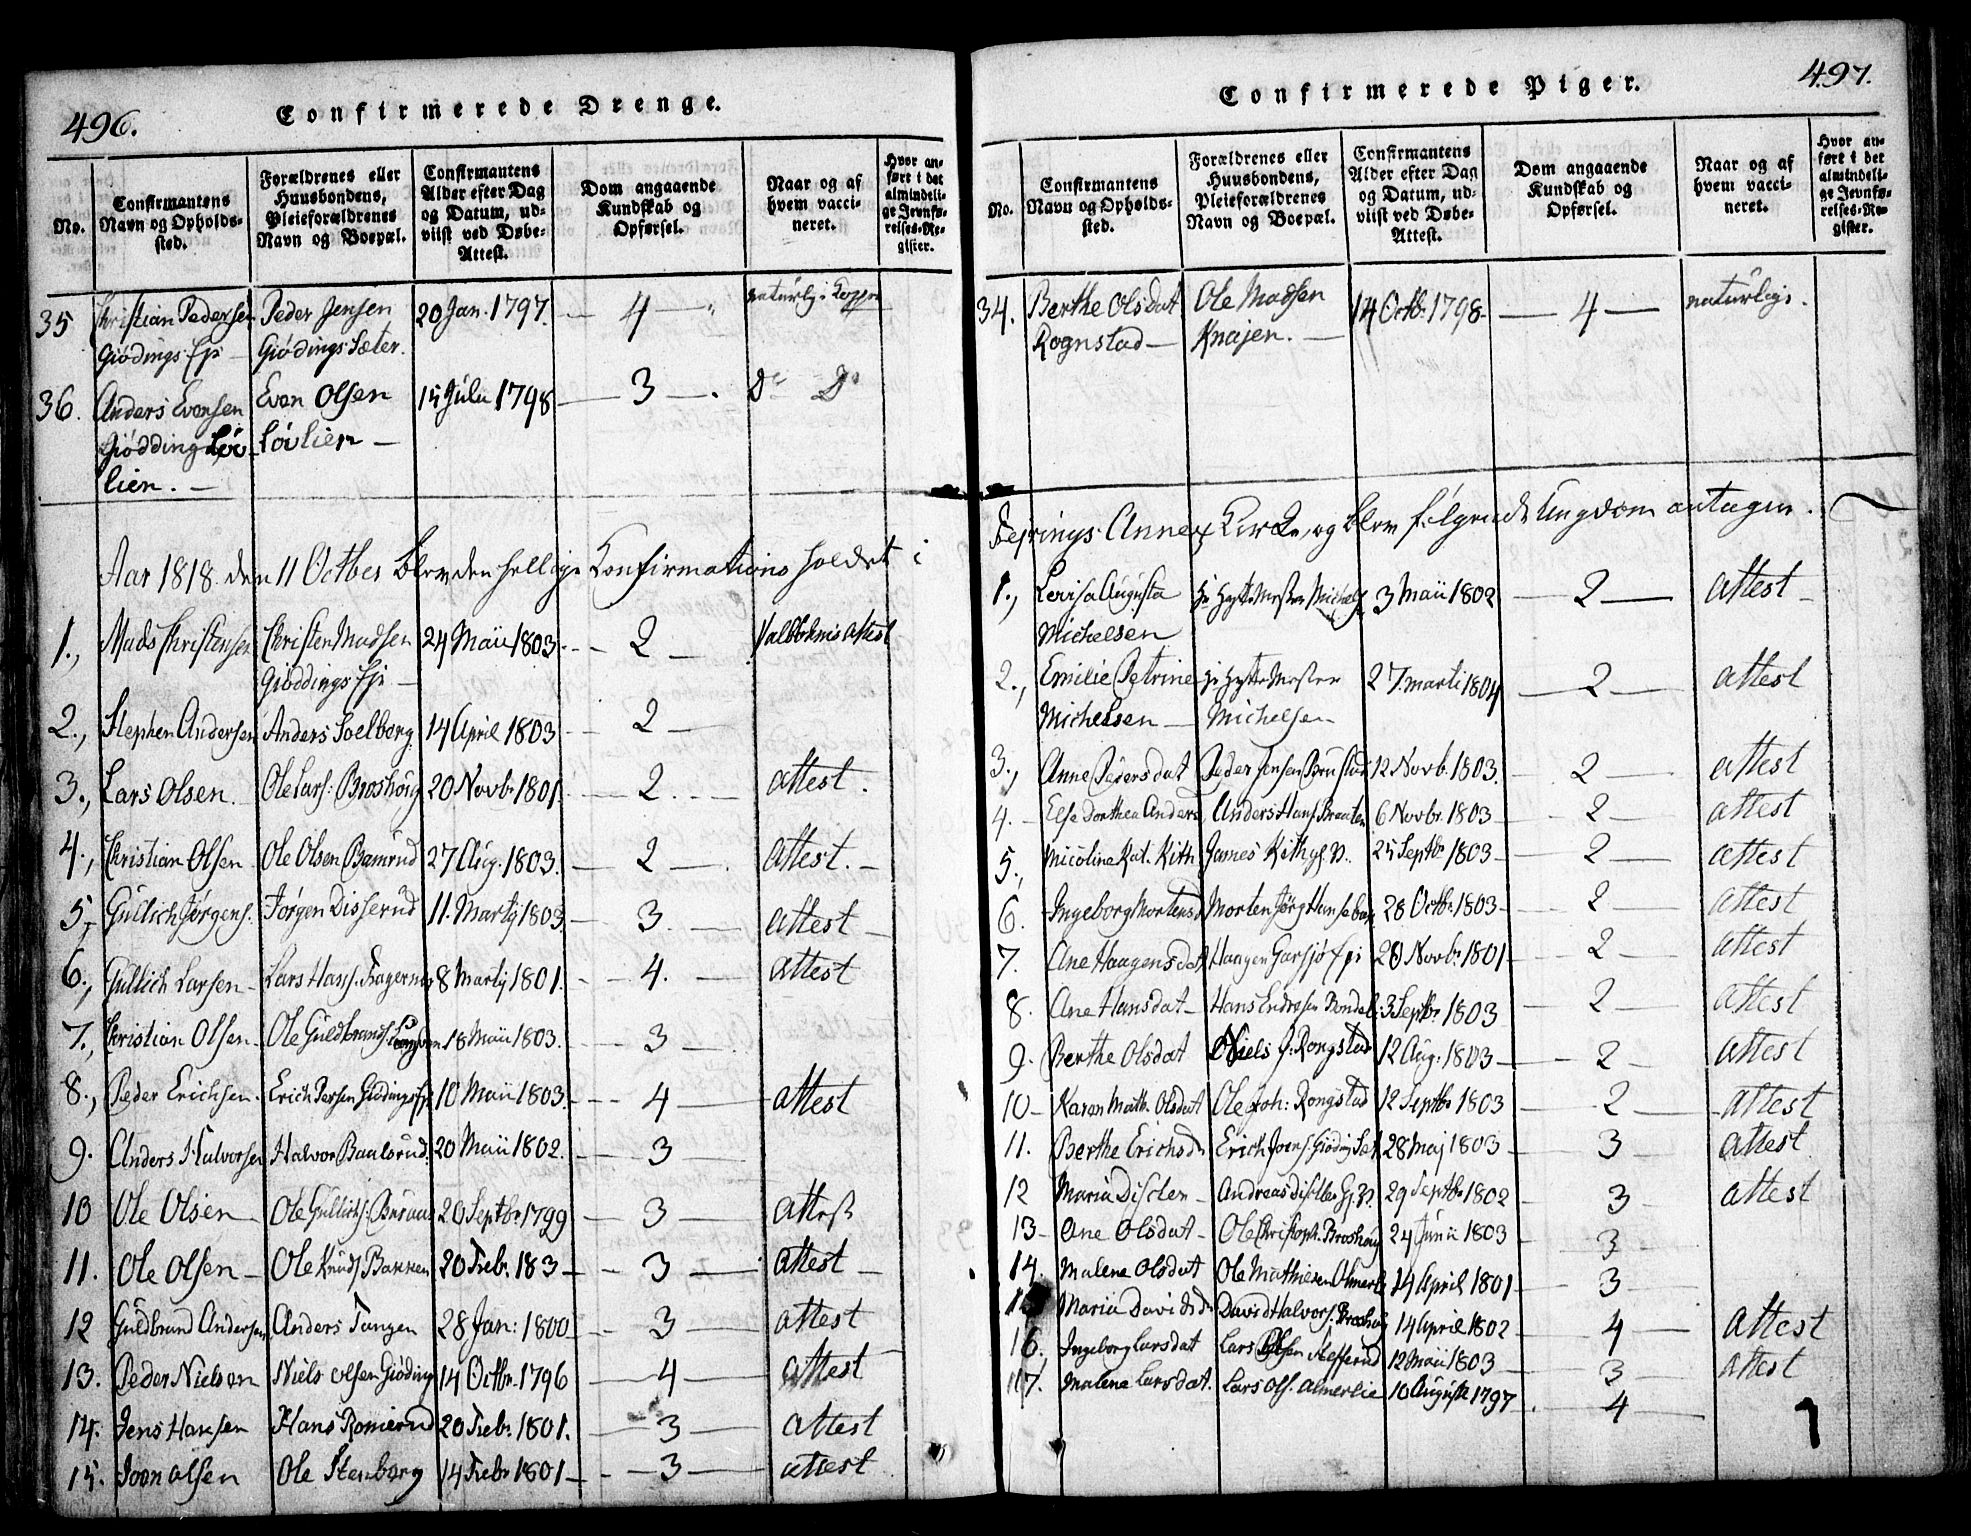 496.
Confirmerede Drenge.
No.
Confirmantens Navn og Opholdssted.
Forældrenes eller Huusbondens, Pleieforældrenes Navn og Boepæl.
Confirmantens Alder efter Dag og Datum, udviist ved Døbe-Attest.
Dom angaaende Kundskab og Opførsel.
Naar og af hvem vaccineret.
Hvor anført i det almindelige Jevnførelses-Register.
35 Christian Pedersen Peder Jensen 20 Jan. 1797. 4 naturlige Kopper
Giødings Giødings Sæter.
36. Anders Evensen Even Olsen 15 Julii 1798 3 Do Do
Giødding Løv- Løvlien
lien.
Aar 1818 den 11 Octber blev den hellige Confirmations holdet i
1., Mads Christensen Christen Madsen 24 Maii 1803. 2 attest
Giøddings
2., Stephen Andersen Anders Soelberg 14 April 1803 2
3., Lars Olsen. Ole Lars: Broshoug 20 Novbr 1801. 2. attest.
4., Christian Olsen Ole Olsen 27 Aug. 1803. 2 attest.
5, Gullich Jørgens. Jørgen Disserud 11. Martij 1803. 3. attest
6., Gullich Larsen Lars Hans. Fragernes 8 Martij 1801. 4. attest
7., Christian Olsen Ole Guldbrands. 18 Maii 1803. 3
8., Peder Erichsen. Erich Persen 10 Maii 1803. 4 attest
9. Anders Halvorsen Halvor 20 Maii 1802. 3
10 Ole Olsen Ole Gullichs. 20 Septbr 1799 3 attest
11. Ole Olsen Ole Knuds Bakken 20 Febr. 183 3 attest
12 Guldbrand Andersen Anders Tangen 28 Jan: 1800 3 attest
13. Peder Nielsen Niels Olsen Giøding 14 Octbr. 1796 4 attest
14. Jens Hansen Hans Romierud 20 Febr. 1801. 3 attest
15. Joen Olsen Ole Stenborg 14 Febr 1801 3 attest
497.
Confirmerede Piger.
No.
Confirmantens Navn og Opholdssted.
Forældrenes eller Huusbondens, Pleieforældrenes Navn og Boepæl.
Confirmantens Alder efter Dag og Datum, udviist ved Døbe-Attest.
Dom angaaende Kundskab og Opførsel.
Naar og af hvem vaccineret.
Hvor anført i det almindelige Jevnførelses-Register.
34. Berthe Olsdat Ole Madsen 14 Octb. 1798 4 naturlige.
Rognstad Knajen.
Annex Kirke, og blev følgende Ungdom antagen.
1., Lovisa Augusta Hr Hytte Mester Michels 3 Maii 1802 2 attest
Michelsen
2., Emilie Petrine Hr Hytte Mester 27. marti 1804 2 attest
Michelsen Michelsen
3., Anne Peders dat Peder Jensen 12 Novb. 1803. 2 attest
4. Else Dorthea Anders Anders Hans. Braaten 6 Novbr. 1803 2 attest
5., Nicoline Kat. Kith James Kith 25 Septbr 1803 2 attest
6. Ingeborg Mortensd Morten Jørg 28 Octbr. 1803 2 attest
7. Ane Haagens dat Haagen Garsjø 20 Novbr 1801 2 attest
8. Ane Hansdat Hans Endresen 3 Septbr. 1803 2 attest
9. Berthe Olsdat Niels J. Rongstad 12 Aug. 1803 2 attest
10 Karen Math. Olsdat Ole Joh: Rongstad 12 Septbr 1803 2 attest
11. Berthe Erichsd Erich Joens. Giøding Sæt. 28 Maj 1803 3 attest
12 Maria Andreas 29 Septbr 1802 3 attest
13 Ane Olsdat Ole Christoph. Broshoug 24 Junii 1803 3
14. Malene Olsdat Ole Mathiesen Almerli 14 April 1801 3
Maria Davidsd David Halvors. 14 April 1802 4 attest
16. Ingeborg Larsdat Lars Olsen 12 Maii 1803 3 attest
17. Malene Larsdat. Lars Ols. Almerlie 10 August 1797 4